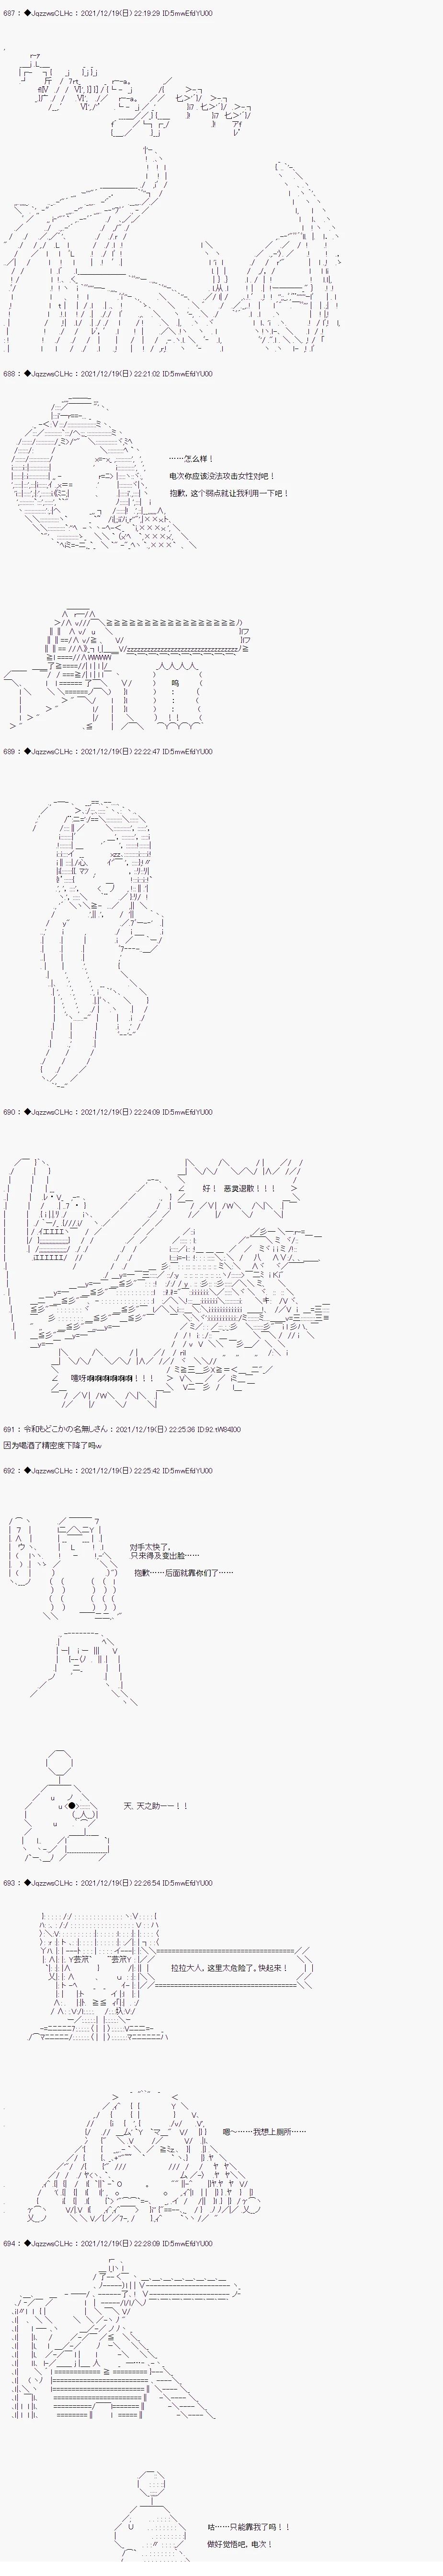 687 : ◆JqzzwsCLHc : 2021/12/19(日) 22:19:29 ID:5mwEfdYU00
688 : ◆JqzzwsCLHc : 2021/12/19(日) 22:21:02 ID:5mwEfdYU00
……怎么样！
电次你应该没法攻击女性对吧！
抱歉，这个弱点就让我利用一下吧！
呜
：
：
！！
689 : ◆JqzzwsCLHc : 2021/12/19(日) 22:22:47 ID:5mwEfdYU00
690 : ◆JqzzwsCLHc : 2021/12/19(日) 22:24:09 ID:5mwEfdYU00
好！ 恶灵退散！！！
噫呀啊啊啊啊啊！！！
691 : 令和もどこかの名無しさん : 2021/12/19(日) 22:25:36 ID:92.tW84I00
因为喝酒了精密度下降了吗w
692 : ◆JqzzwsCLHc : 2021/12/19(日) 22:25:42 ID:5mwEfdYU00
对手太快了，
只来得及变出脸……
抱歉……后面就靠你们了……
天、天之助ーー！！
693 : ◆JqzzwsCLHc : 2021/12/19(日) 22:26:54 ID:5mwEfdYU00
拉拉大人，这里太危险了。快起来！
嗯～……我想上厕所……
694 : ◆JqzzwsCLHc : 2021/12/19(日) 22:28:09 ID:5mwEfdYU00
咕……只能靠我了吗！！
做好觉悟吧，电次！